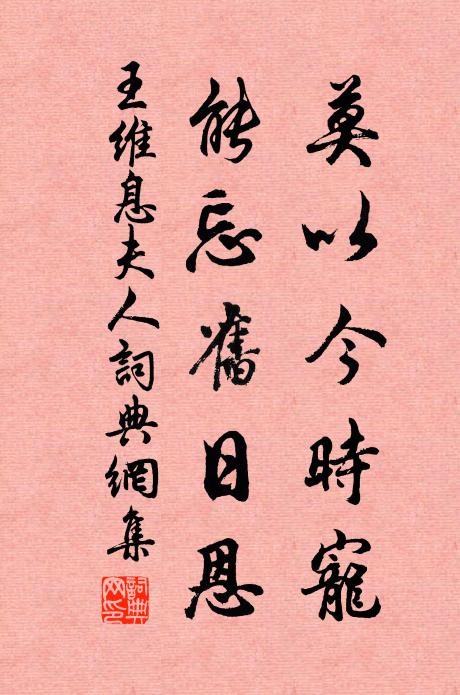 莫以今時寵
能忘舊日恩
王維息夫人詞典網集
詞典
网印